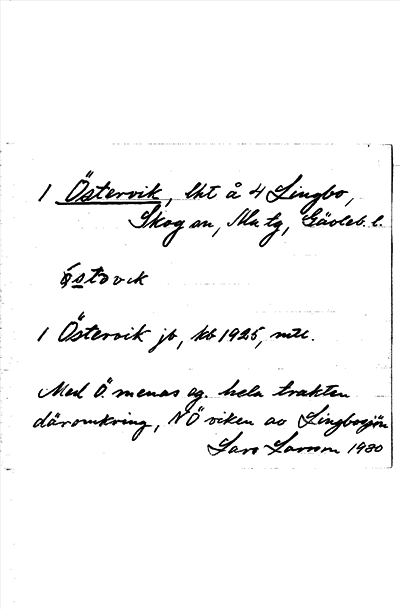 1 Östervik, lht å 4 Lingbo,
Skog sn, Ala tg, Gävleb. l.
östəvik
1 Östervik jb, kb 1925, mtl.
Med Ö. menas eg. hela trakten
däromkring, NÖ viken av Lingbosjön
Lars Larsson 1930